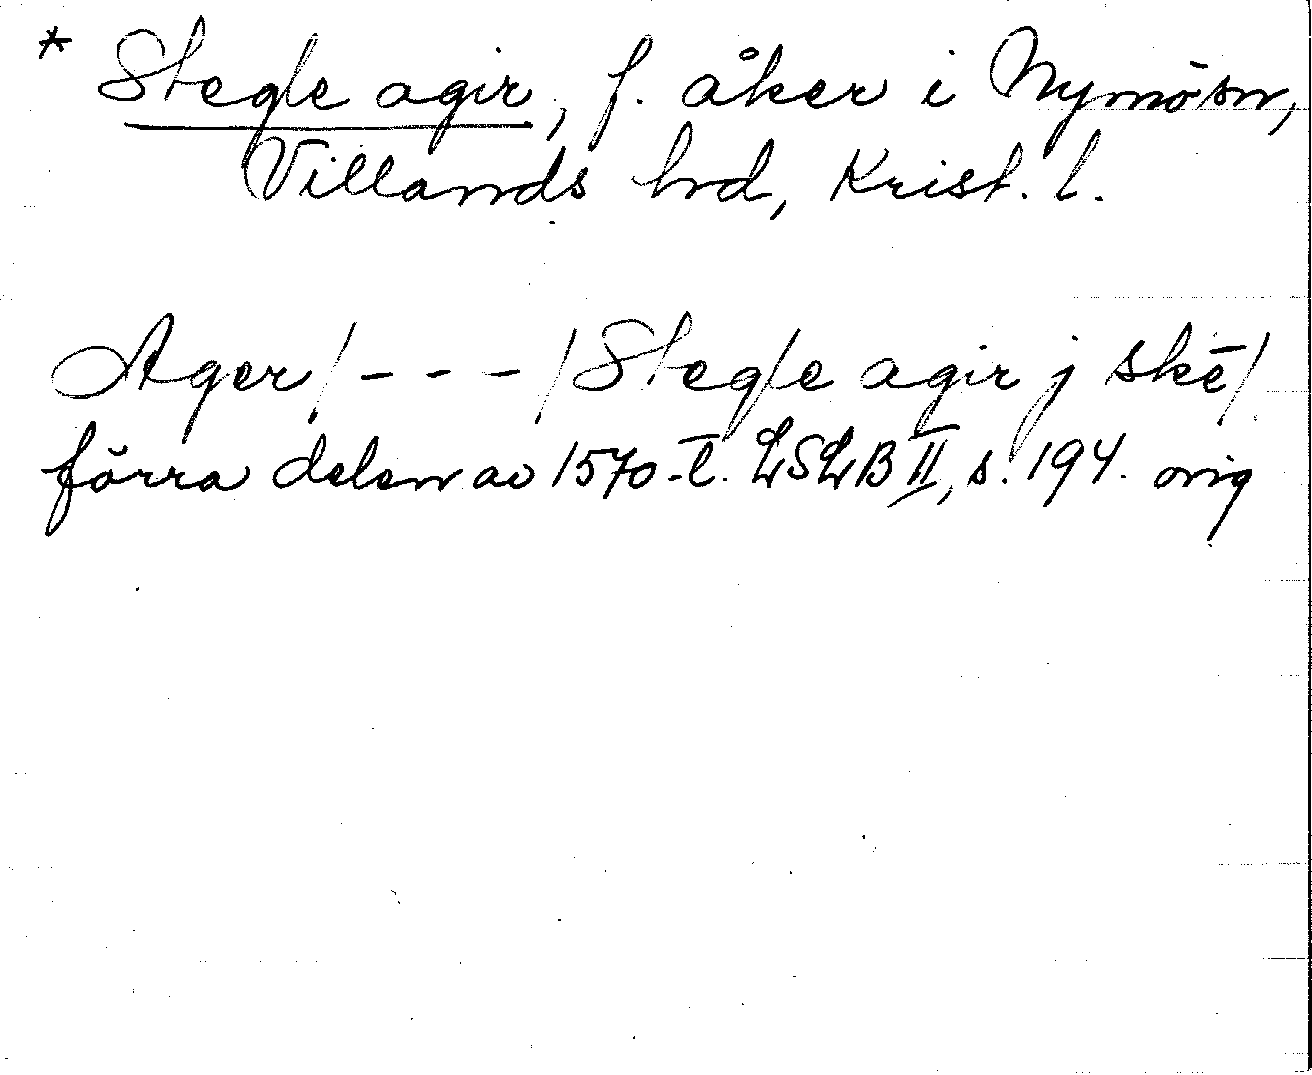 * Stegle agir, f. åker i Nymö sn,
Villands hd, Krist. l.
Ager/ - - - /Stegle agir j skē/
förra delen av 1570-t. LSLB II, s. 194. orig